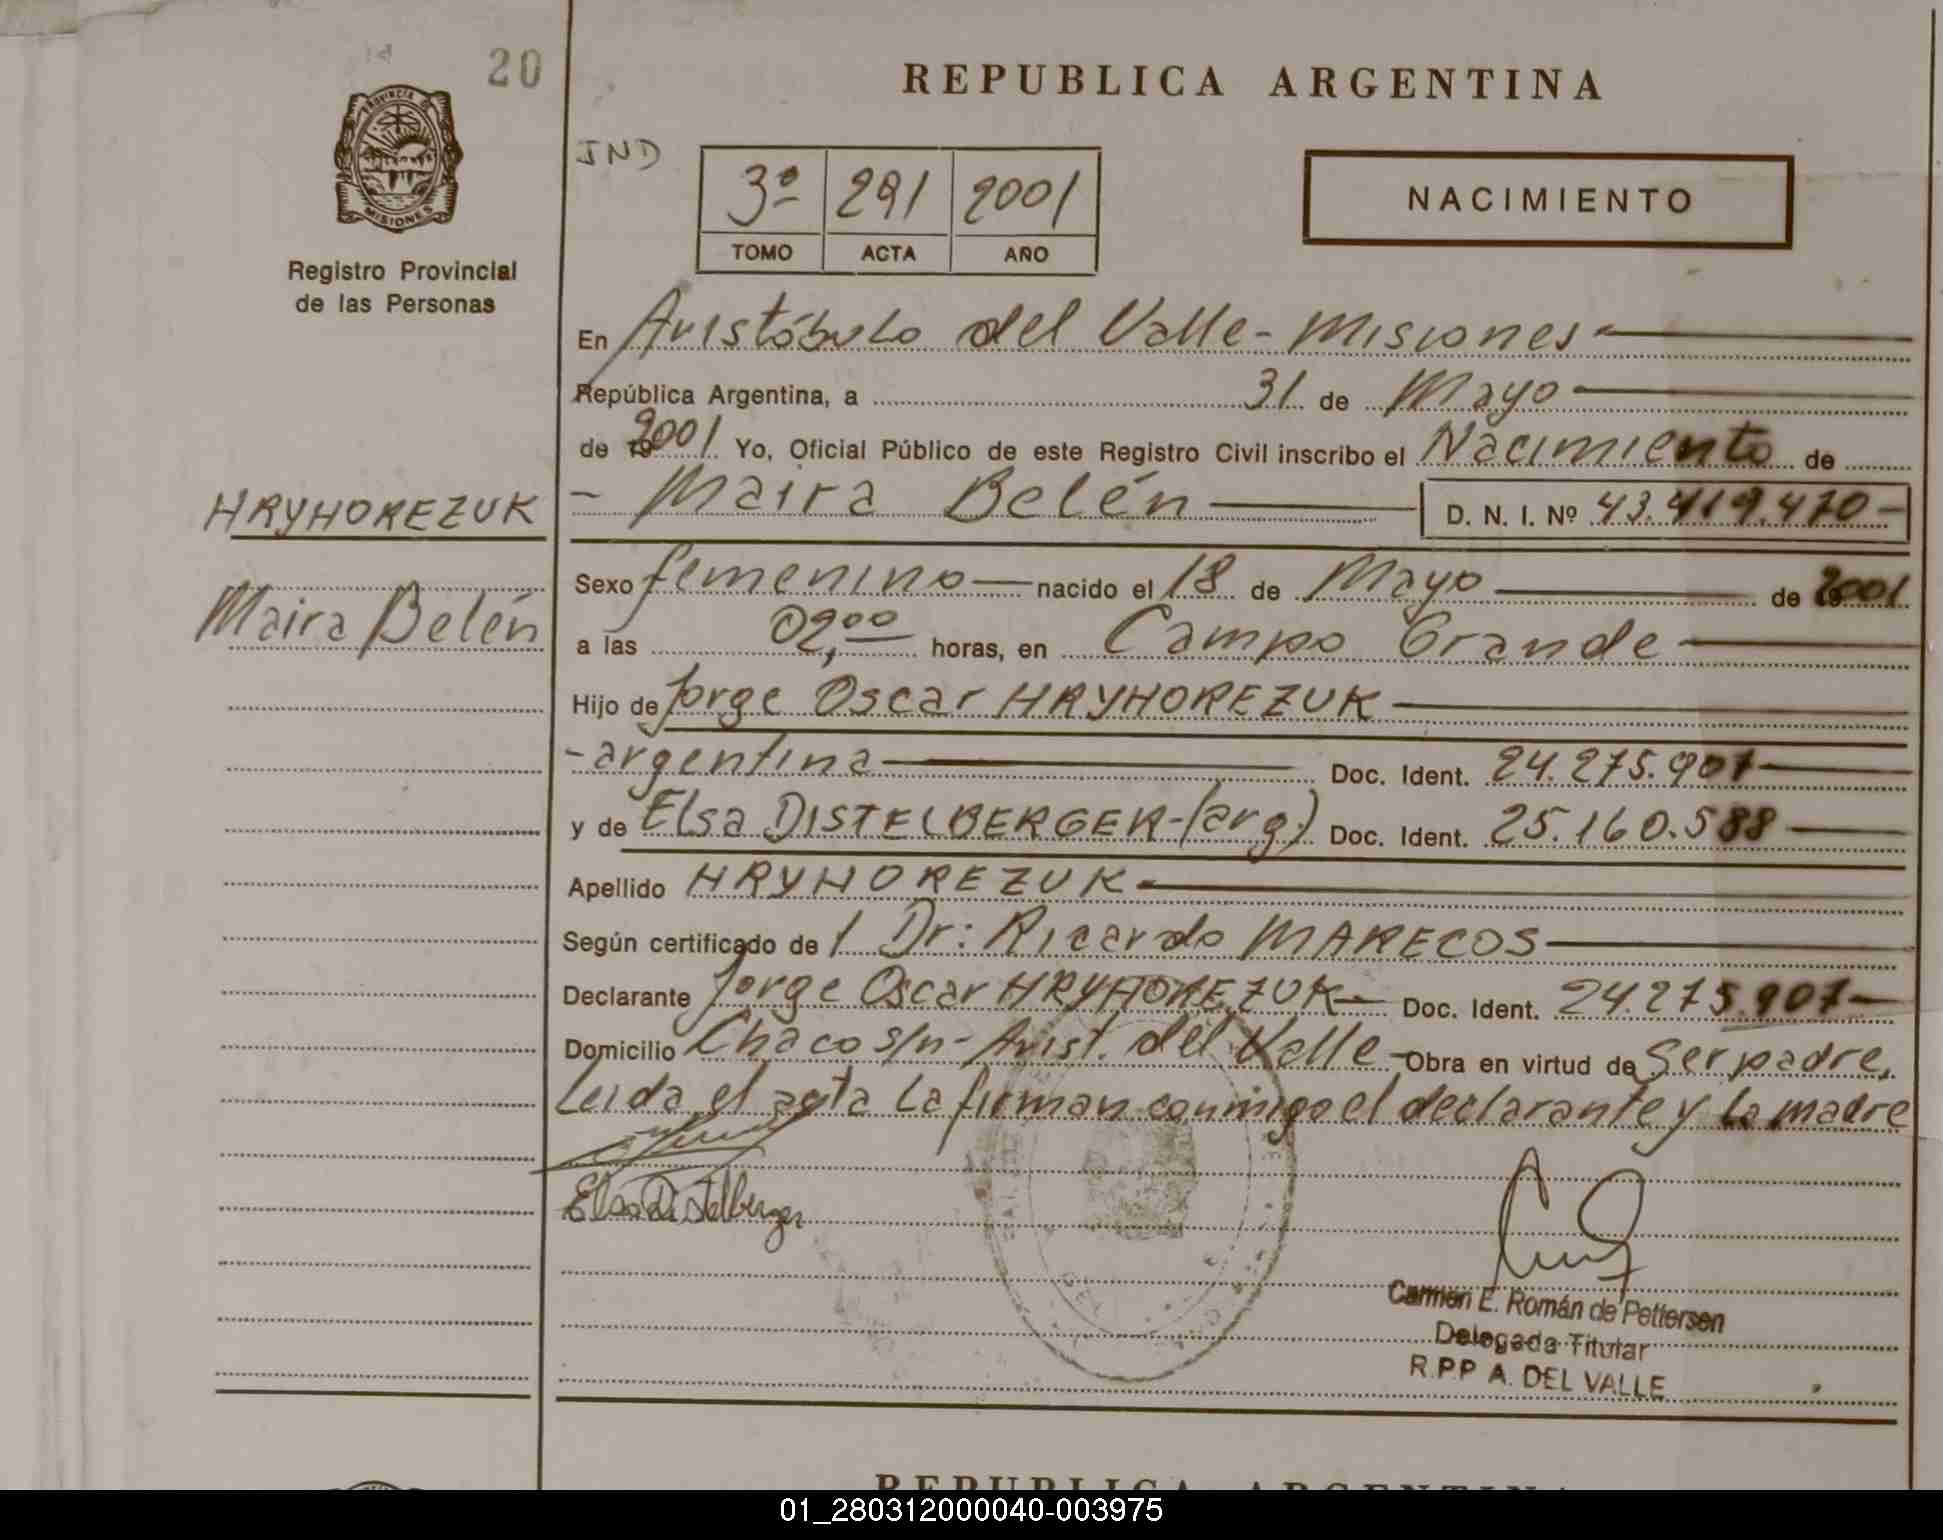 20
REPUBLICA ARGENTINA
PROVINCIA DE
MISIONES
IND
3º 291 2001
TOMO ACTA AÑO
NACIMIENTO
Registro Provincial
de las Personas
En Aristóbulo del Valle - Misiones
República Argentina, a 31 de Mayo
de 2001 Yo, Oficial Público de este Registro Civil inscribo el Nacimiento de
HRYHOREZUK
- Maira Belén D. N. I. Nº 43.419.470-
Maira Belén
Sexo femenino nacido el 18 de Mayo de 2001
a las 02,00 horas, en Campo Grande
Hijo de Jorge Oscar HRYHOREZUK
- argentina Doc. Ident. 24.275.907
y de Elsa DISTELBERGER - (arg.) Doc. Ident. 25.160.588
Apellido HRYHOREZUK
Según certificado de / Dr: Ricardo MARECOS
Declarante Jorge Oscar HRYHOREZUK Doc. Ident. 24.275.907
Domicilio Chaco s/n - Arist. del Valle - Obra en virtud de Ser padre,
Leida el acta la firman conmigo el declarante y la madre
Elsa Distelberger
Carmen E. Román de Pettersen
Delegada Titular
R.P.P A. DEL VALLE
REPUBLICA ARGENTINA
01_280312000040-003975